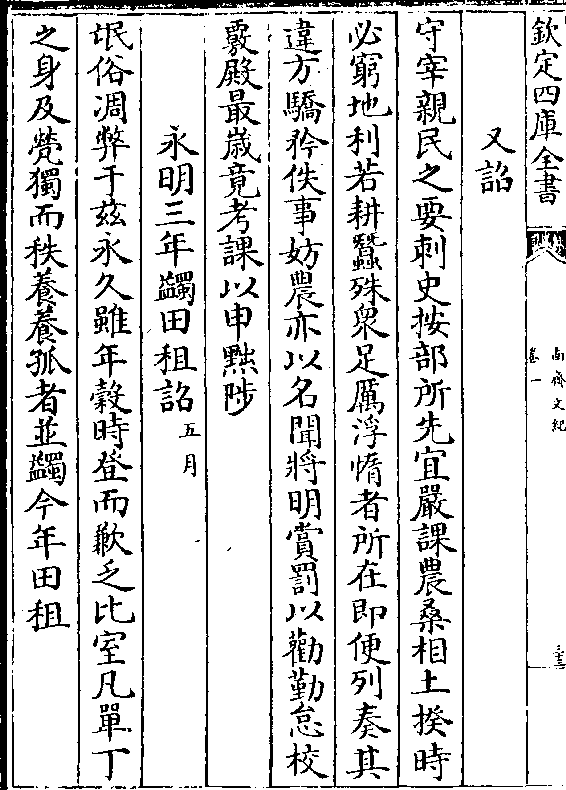 欽定四庫全書
南齊文紀
卷一
又詔
守宰親民之要刺史按部所先宜嚴課農桑相土揆時
必窮地利若耕蠶殊衆足厲浮惰者所在即便列奏其
違方驕矜佚事妨農亦以名聞將明賞罰以勸勤怠校
覈殿最歲竟考課以申黜陟
永明三年蠲田租詔五月
氓俗凋弊于兹永久雖年穀時登而歉乏比室凡單丁
之身及煢獨而秩養養孤者並蠲今年田租